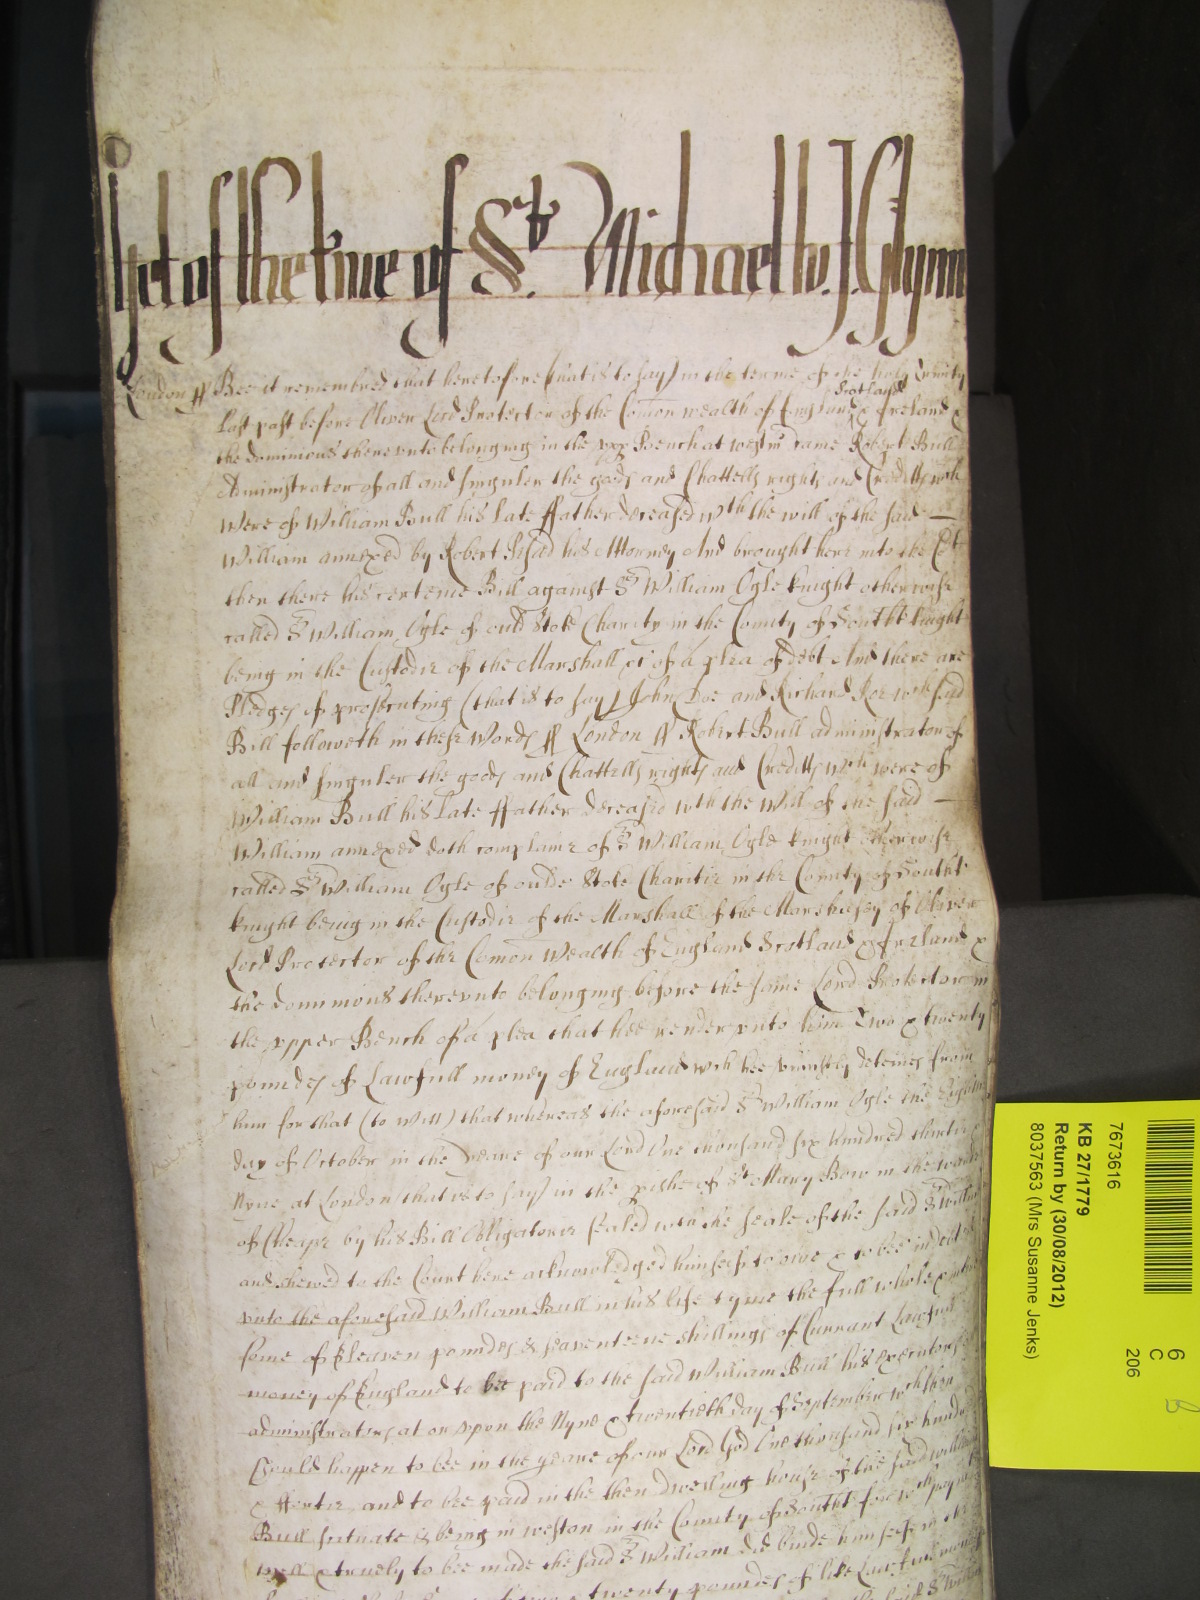 Yet of the tme of St. Michael w. J. Glynn
London ff Bee it remembred that heretofore (that is to say) in the terme of the holy Trinity
Last past before Oliver Lord Protector of the Comon wealth of England Scotland & Ireland &
the dominions therevnto belonging in the vpp Bench at westmr came Robert Bull
Administrator of all and singuler the goods and Chattells rights and Creditts wch
were of William Bull his late ffather deceased wth the will of the said
William annexed by Robert his Attorney And brought here into the Ct
then there his certeine Bill against Sr William Ogle knight otherwise
called Sr William Ogle of ould Stoke Charity in the County of Southt knight
being in the Custodie of the Marshall &c of a plea of debt And there are
Pledges of prosecuting (that is to say) John Doe and Richard Roe wch said
Bill followeth in these words ff London ff Robert Bull administrator of
all and singuler the goods and Chattells rights and Creditts wch were of
William Bull his Late ffather deceased wth the Will of the said
William annexed doth complaine of Sr William Ogle knight otherwise
called Sr William Ogle of oulde Stoke Charitie in the County of Southt
knight being in the Custodie of the Marshall of the Marshalsey of Oliver
Lord Protector of the Comon Wealth of England Scotland & Ireland &
the dominions therevnto belonging before the same Lord Protector in
the vpper Bench of a plea that hee render vnto him Two & twenty
poundes of Lawfull money of England wch hee vniustly deteines from
him for that (to witt) that whereas the aforesaid Sr William Ogle the Eighth
day of October in the yeare of our Lord One thousand six hundred thirtie &
Nyne at London (that is to say) in the pishe of St Mary Bow in the ward
of Cheape by his Bill Obligatorie sealed with the seale of the said Sr William
and shewed to the Court here acknowledged himself to owe & to bee indebted
vnto the aforesaid William Bull in his life tyme the full whole & entire
some of Eleaven poundes & seaventeene shillings of Currant Lawfull
money of England to bee paid to the said William Bull his Executors
administrators at or vpon the Nyne & twentieth day of September wch then
should happen to bee in the yeare of our Lord God One thousand six hundred
& ffortie and to bee paid in the then dwelling house of the said William
Bull scituate & being in weston in the County of Southt for wch paymt
well & truely to bee made the said Sr William did binde himself in the
twenty poundes of like Lawfull money
7673616
KB 27/1779
Return by (30/08/2012)
8037563 (Mrs Susanne Jenks)
6
C
206